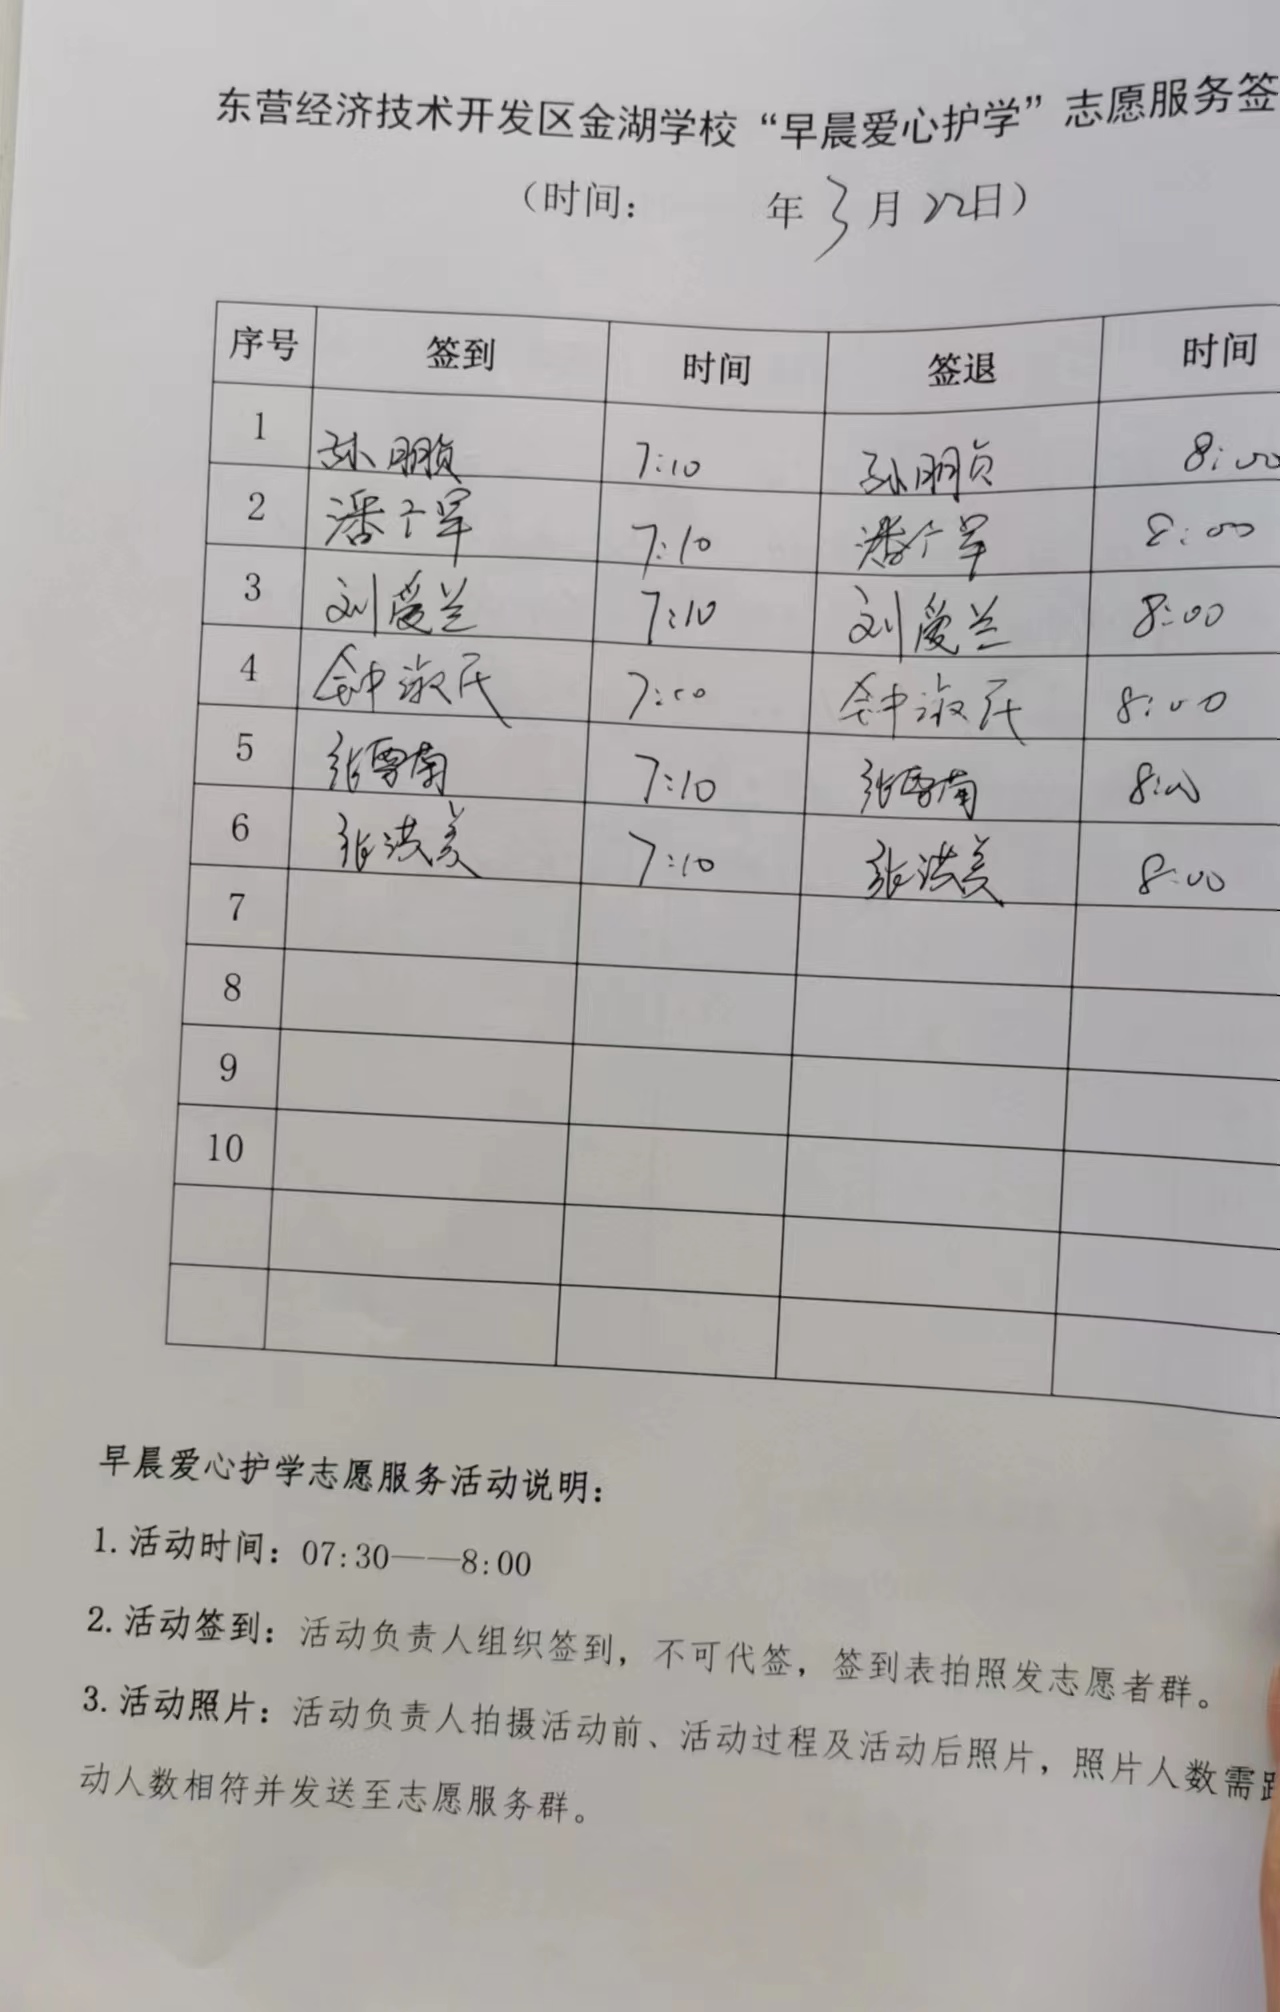 东营经济技术开发区金湖学校“早晨爱心护学”志愿服务签
（时间： 年 3 月 22日）
序号 签到 时间 签退 时间
1 孙朋贞 7:10 孙朋贞 8:00
2 潘军 7:10 潘军 8:00
3 刘爱兰 7:10 刘爱兰 8:00
4 钟淑民 7:10 钟淑民 8:00
5 张雪南 7:10 张雪南 8:00
6 张洪美 7:10 张洪美 8:00
7
8
9
10
早晨爱心护学志愿服务活动说明：
1. 活动时间：07:30——8:00
2. 活动签到：活动负责人组织签到，不可代签，签到表拍照发志愿者群。
3. 活动照片：活动负责人拍摄活动前、活动过程及活动后照片，照片人数需
动人数相符并发送至志愿服务群。